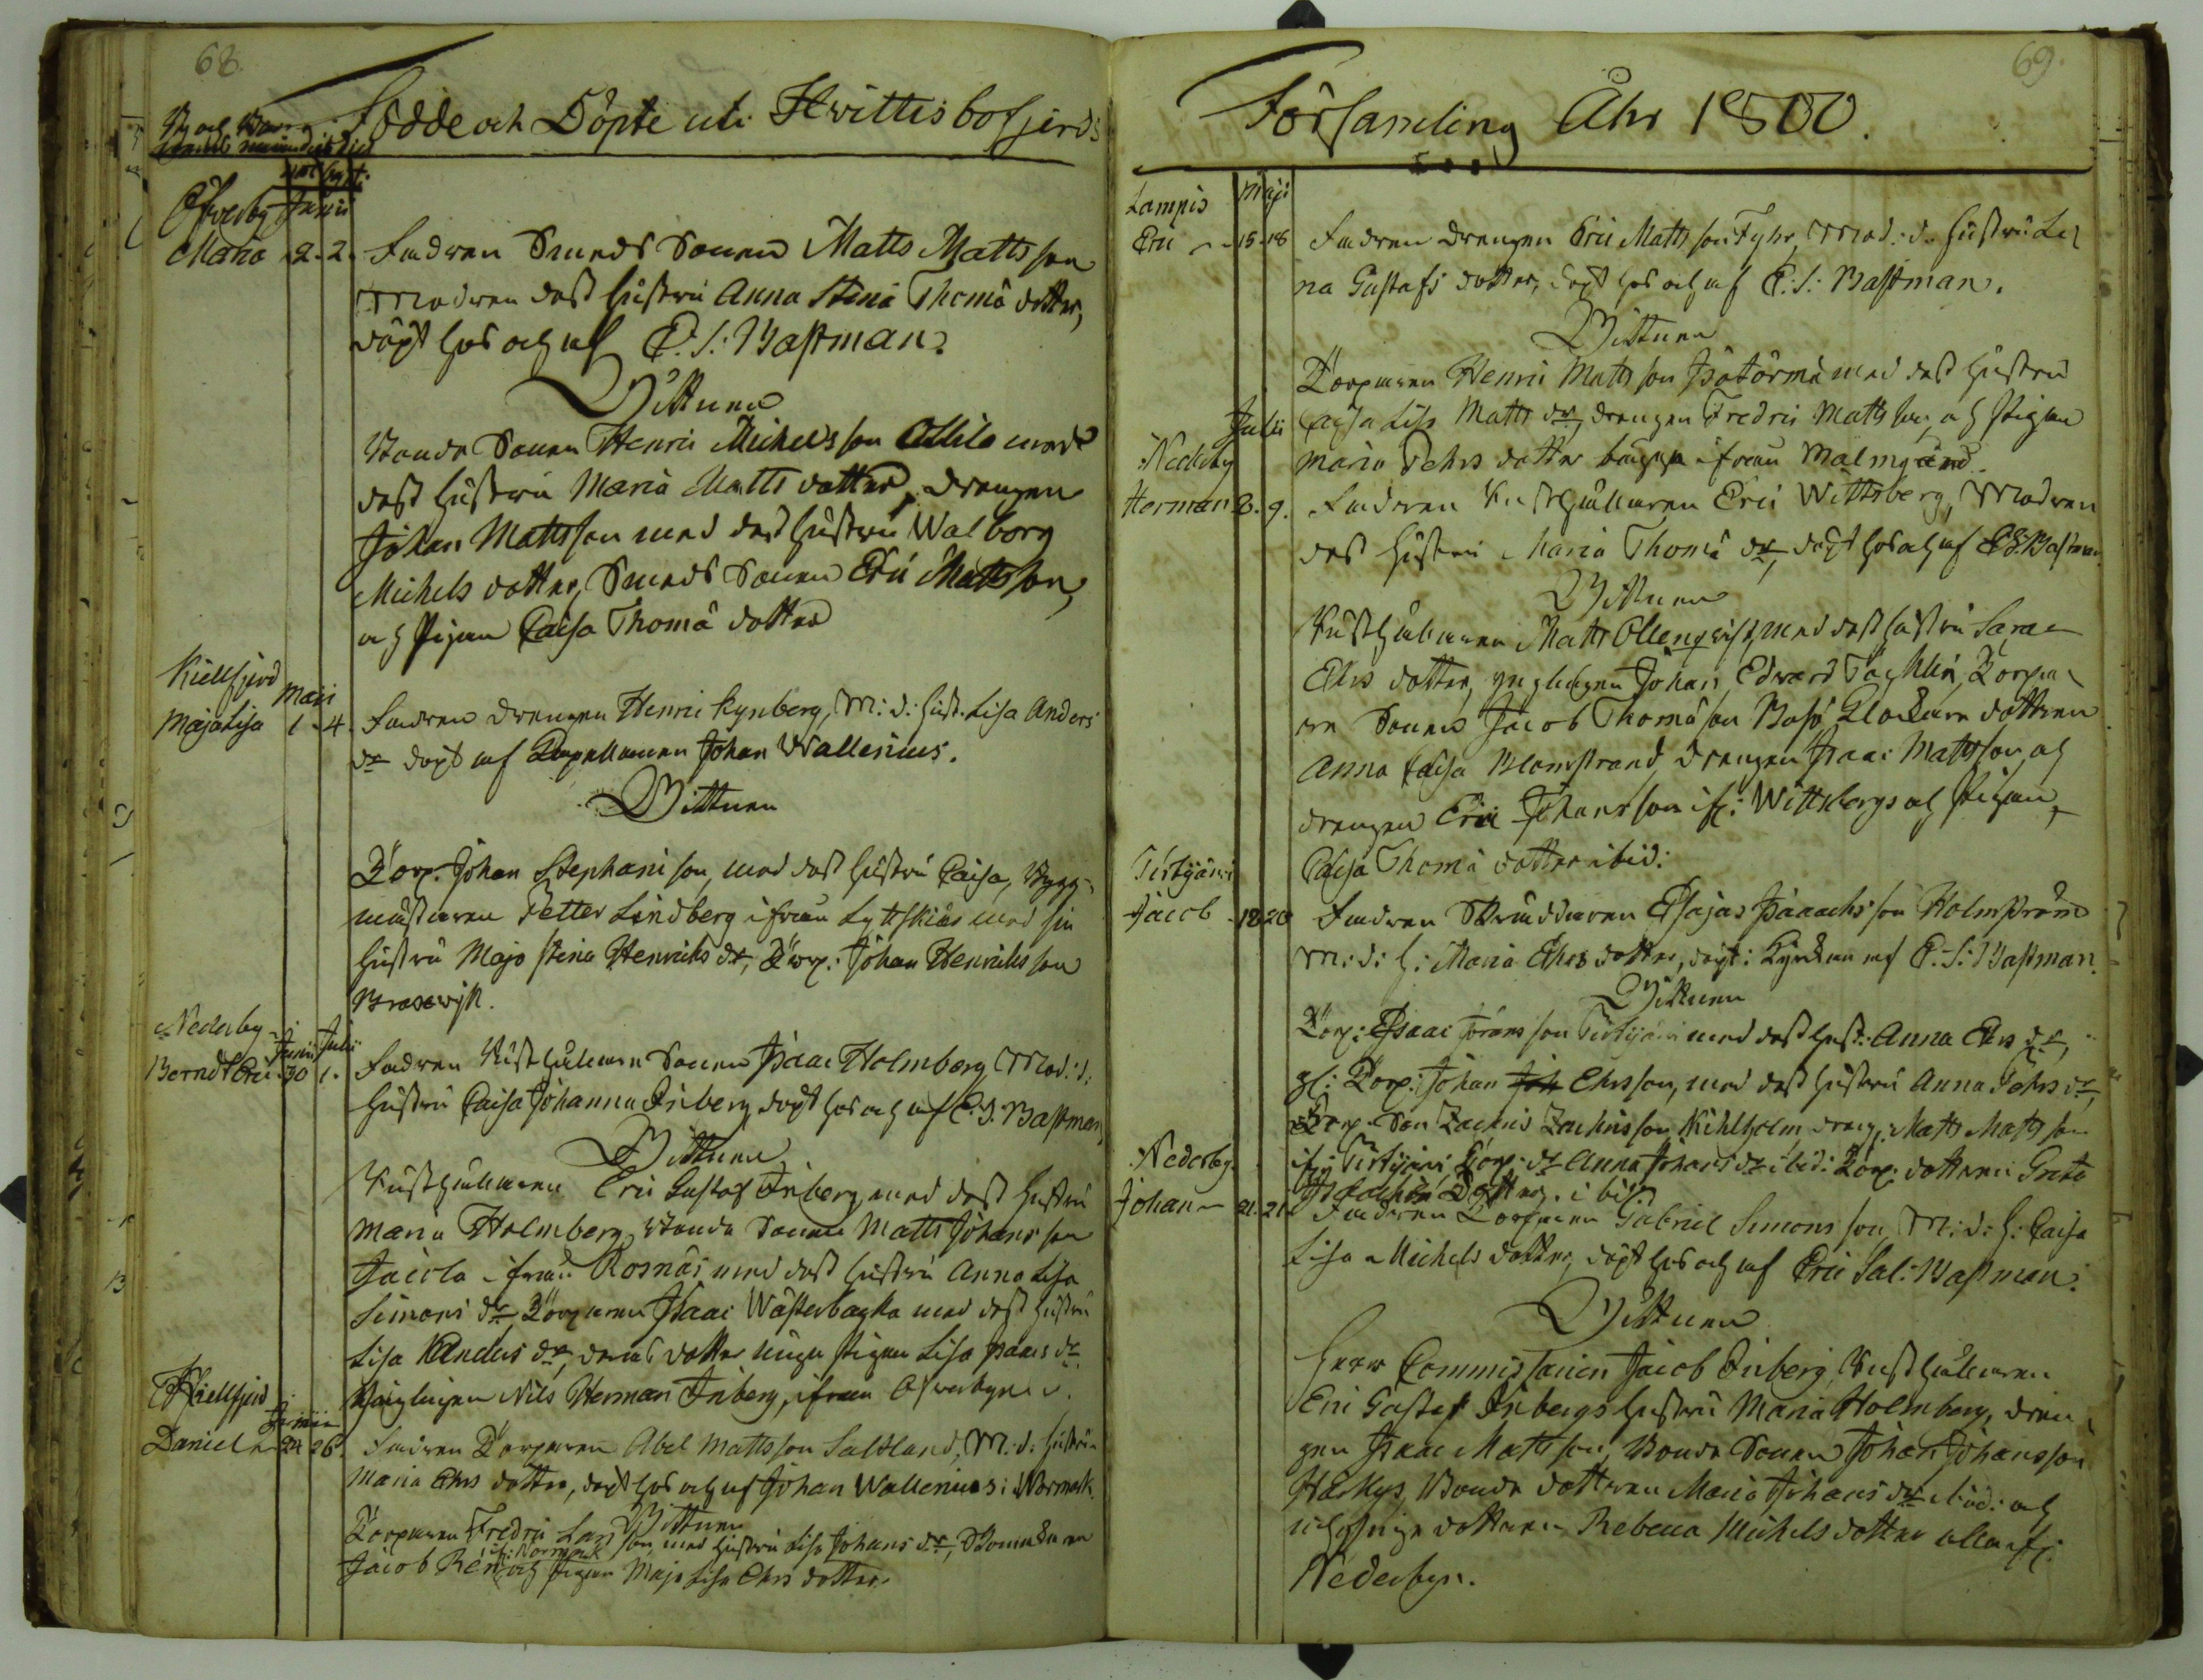 68.
Födde och Döpte uti Hwittisbofjerds
Öfverby Junii
Maria 2. 2. Fadren Smeds Sonen Matts Mattsson
Modren dess hustru Anna Stina Thomæ dotter,
döpt hos och af E. S. Bastman.
Wittnen
Bonde Sonen Henric Michelsson Ollila med
dess hustru Maria Matts dotter, drengen
Johan Mattsson med dess hustru Walborg
Michels dotter, Smeds Sonen Eric Mattsson,
och Pigan Caisa Thomæ dotter
Kiellfjerd Maii
Maja Lisa 1. 4. Fadren drengen Henric Rynberg, M: d: hust. Lisa Anders
dr döpt af Capellanen Johan Wallenius.
Wittnen
Torp. Johan Stephansson, med dess hustru Caisa, Bygg-
mästaren Petter Lindberg ifrån Lyttskär med sin
hustru Maja Stina Henrichs dr, Torp: Johan Henrichsson
Nederby Junii Julii
Berndt Eric 30 1. Fadren Rusthållare Sonen Isaac Holmberg, Mod: d:
hustru Caisa Johanna Inberg döpt hos och af E. S. Bastman,
Wittnen
Rusthållaren Eric Gustaf Inberg med dess hustru
Maria Holmberg, Bonde Sonen Matts Johansson
Jacola ifrån Rosnäs med dess hustru Anna Lisa
Simons dr, Torparen Isaac Wästerbacka med dess hustru
Lisa Anders dr, deras dotter unga Pigan Lisa Isaacs dr
Ynglingen Nils Herman Inberg, ifrån Öfverbyn.
Kiellfjerd Junii
Daniel 24 26. Fadren Torparen Abel Mattsson Saltland, M: d: hustru
Maria Ehrs dotter, döpt hos och af Johan Wallenius i Normark.
Wittnen
Torparen Fredric Larsson, med hustru Lisa Johans dr,
if: Normark
Jacob Rén och Pigan Maja Lisa Ehrs dotter.
69.
Församling Åhr 1800.
Lampis Maji
Eric 15. 18 Fadren drengen Eric Mattsson Fyhr, Mod: d: hustru Le-
na Gustafs dotter, döpt hos och af E: S: Bastman.
Wittnen
Torparen Henric Mattsson Isotörmä med dess hustru
Caisa Lisa Matts dr, drengen Fredric Mattsson, och Pigan
Maria Pehrs dotter begge ifrån Malmgrund.
Julii
Nederby
Herman 8. 9. Fadren Rusthållaren Eric Wittsberg, Modren
dess hustru Maria Thomæ dr, döpt hos och af E S Bastman.
Wittnen
Rusthållaren Matts Ollenqvist, med dess hustru Sara
Ehrs dotter, ynglingen Johan Edvard Täcklin, Torpa-
re Sonen Jacob Thomæson Basö, Klockare dottren
Anna Caisa Blomstrand, drengen Isaac Mattsson, och
drengen Eric Johansson if: Wittsbergs och Pigan
Caisa Thomæ dotter ibid:
Tirtjärvi
Jacob 18 20 Fadren Skräddaren Esajas Isaachsson Holmström
M: d: h: Maria Ehrs dotter, döpt i Kyrckan af E. S: Bastman.
Wittnen
Torp: Isaac Göransson Tirtjärvi med dess hust: Anna Ehrs dr,
gl: Torp: Johan Ehrsson, med dess hustru Anna Pehrs dr,
Torp. Son Zachris Zachrisson Kihlholm, dreng. Matts Mattsson
ifrån Tirtjärvi Torp: dr Anna Johans dr ibid: Torp: dottren Greta
dotter. ibid.
Nederby
Johan 21. 21. Fadren Torparen Gabriel Simonsson, M: d: h: Caisa
Lisa Michels dotter, döpt hos och af Eric Sal: Bastman.
Wittnen
Herr Commissarien Jacob Inberg, Rusthållaren
Eric Gustaf Inbergs hustru Maria Holmberg, dren-
gen Isaac Mattsson, Bonde Sonen Johan Johansson
Harkys, Bonde dottren Maria Johans dr ibid: och
dottren Rebecca Michels dotter alla if:
Nederbyn.